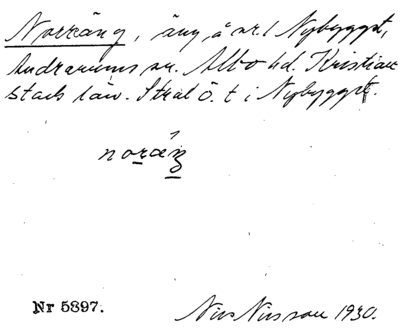 Norräng, äng å nr. 1 Nybygget,
Andrarums sn. Albo hd. Kristian-
stads län. Strax ö. t i Nybygget.
noräŋ
Nr 5897. Nils Nilsson 1930.